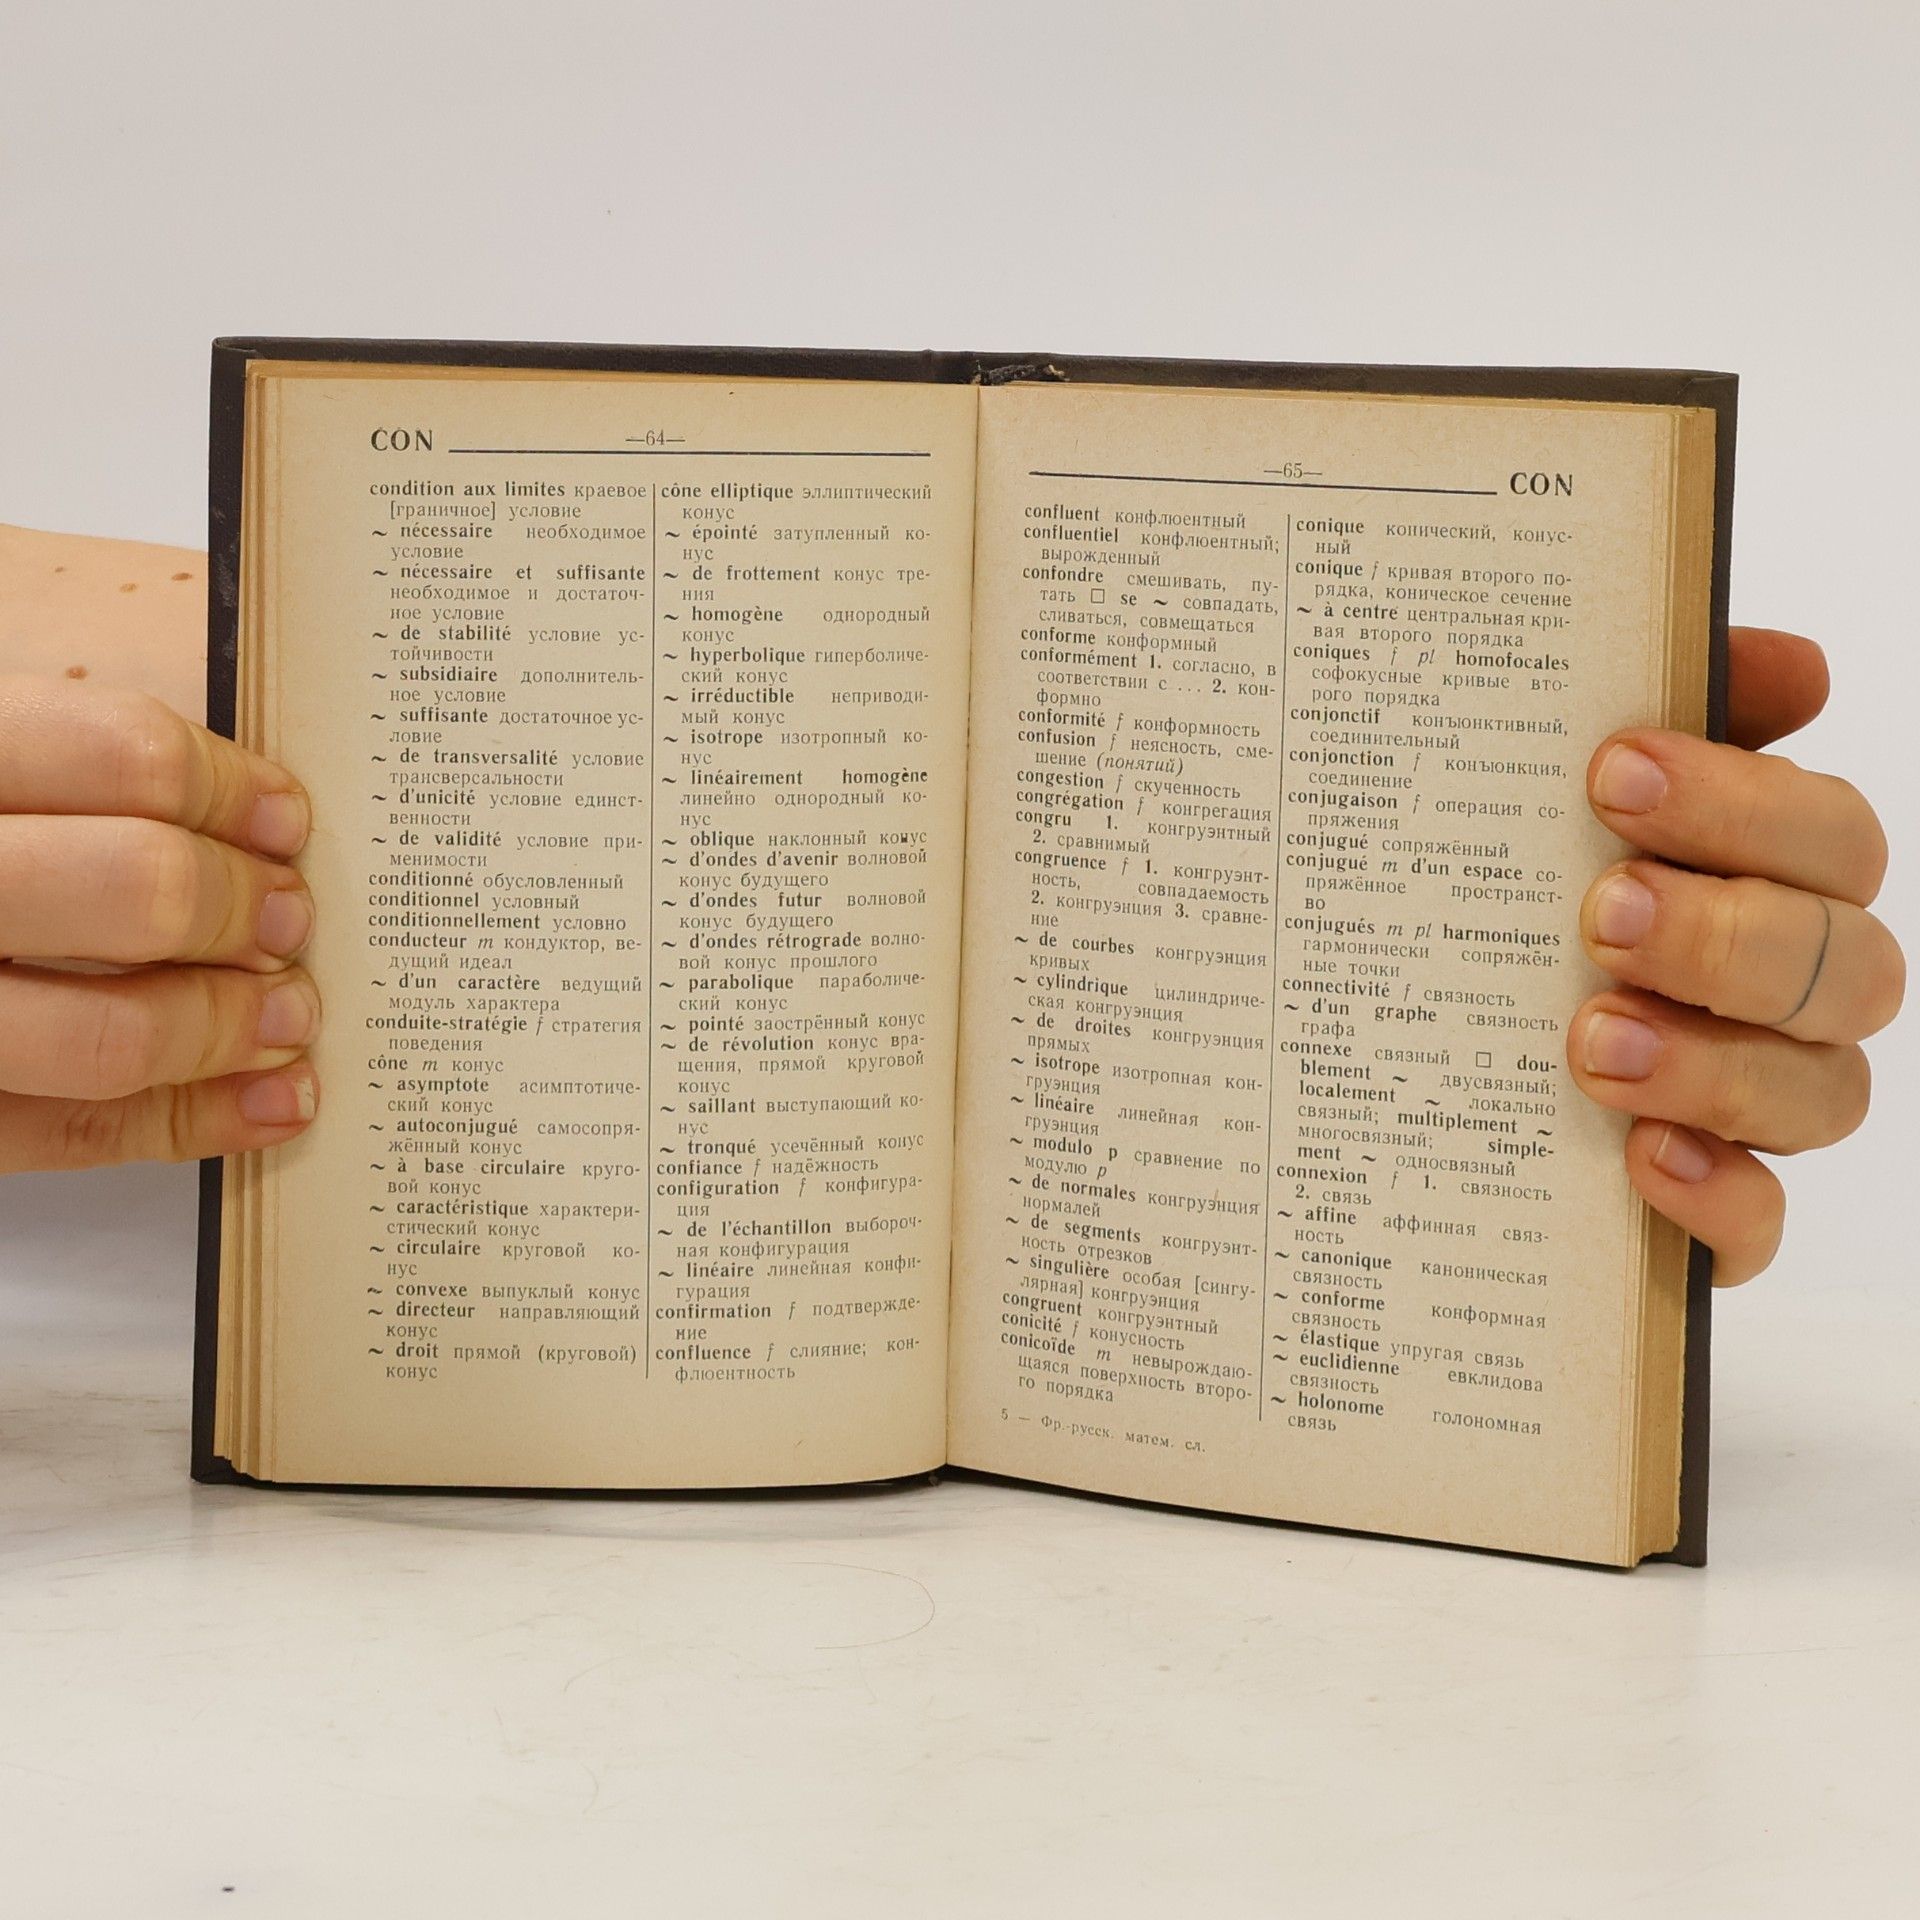 CON —64—
condition aux limites краевое
[граничное] условие
~ nécessaire необходимое
условие
~ nécessaire et suffisante
необходимое и достаточ-
ное условие
~ de stabilité условие ус-
тойчивости
~ subsidiaire дополнитель-
ное условие
~ suffisante достаточное ус-
ловие
~ de transversalité условие
трансверсальности
~ d'unicité условие единст-
венности
~ de validité условие при-
менимости
conditionné обусловленный
conditionnel условный
conditionnellement условно
conducteur m кондуктор, ве-
дущий идеал
~ d'un caractère ведущий
модуль характера
conduite-stratégie f стратегия
поведения
cône m конус
~ asymptote асимптотиче-
ский конус
~ autoconjugué самосопря-
жённый конус
~ à base circulaire круго-
вой конус
~ caractéristique характери-
стический конус
~ circulaire круговой ко-
нус
~ convexe выпуклый конус
~ directeur направляющий
конус
~ droit прямой (круговой)
конус
cône elliptique эллиптический
конус
~ épointé затупленный ко-
нус
~ de frottement конус тре-
ния
~ homogène однородный
конус
~ hyperbolique гиперболиче-
ский конус
~ irréductible неприводи-
мый конус
~ isotrope изотропный ко-
нус
~ linéairement homogène
линейно однородный ко-
нус
~ oblique наклонный конус
~ d'ondes d'avenir волновой
конус будущего
~ d'ondes futur волновой
конус будущего
~ d'ondes rétrograde волно-
вой конус прошлого
~ parabolique параболиче-
ский конус
~ pointé заострённый конус
~ de révolution конус вра-
щения, прямой круговой
конус
~ saillant выступающий ко-
нус
~ tronqué усечённый конус
confiance f надёжность
configuration f конфигура-
ция
~ de l'échantillon выбороч-
ная конфигурация
~ linéaire линейная конфи-
гурация
confirmation f подтвержде-
ние
confluence f слияние; кон-
флюентность
—65— CON
confluent конфлюентный
confluentiel конфлюентный;
вырожденный
confondre смешивать, пу-
тать □ se ~ совпадать,
сливаться, совмещаться
conforme конформный
conformément 1. согласно, в
соответствии с ... 2. кон-
формно
conformité f конформность
confusion f неясность, сме-
шение (понятий)
congestion f скученность
congrégation f конгрегация
congru 1. конгруэнтный
2. сравнимый
congruence f 1. конгруэнт-
ность, совпадаемость
2. конгруэнция 3. сравне-
ние
~ de courbes конгруэнция
кривых
~ cylindrique цилиндриче-
ская конгруэнция
~ de droites конгруэнция
прямых
~ isotrope изотропная кон-
груэнция
~ linéaire линейная кон-
груэнция
~ modulo p сравнение по
модулю p
~ de normales конгруэнция
нормалей
~ de segments конгруэнт-
ность отрезков
~ singulière особая [сингу-
лярная] конгруэнция
congruent конгруэнтный
conicité f конусность
conicoïde m невырождаю-
щаяся поверхность второ-
го порядка
5 — Фр.-русск. матем. сл.
conique конический, конус-
ный
conique f кривая второго по-
рядка, коническое сечение
~ à centre центральная кри-
вая второго порядка
coniques f pl homofocales
софокусные кривые вто-
рого порядка
conjonctif конъюнктивный,
соединительный
conjonction f конъюнкция,
соединение
conjugaison f операция со-
пряжения
conjugué сопряжённый
conjugué m d'un espace со-
пряжённое пространст-
во
conjugués m pl harmoniques
гармонически сопряжён-
ные точки
connectivité f связность
~ d'un graphe связность
графа
connexe связный □ dou-
blement ~ двусвязный;
localement ~ локально
связный; multiplement ~
многосвязный; simple-
ment ~ односвязный
connexion f 1. связность
2. связь
~ affine аффинная связ-
ность
~ canonique каноническая
связность
~ conforme конформная
связность
~ élastique упругая связь
~ euclidienne евклидова
связность
~ holonome голономная
связь